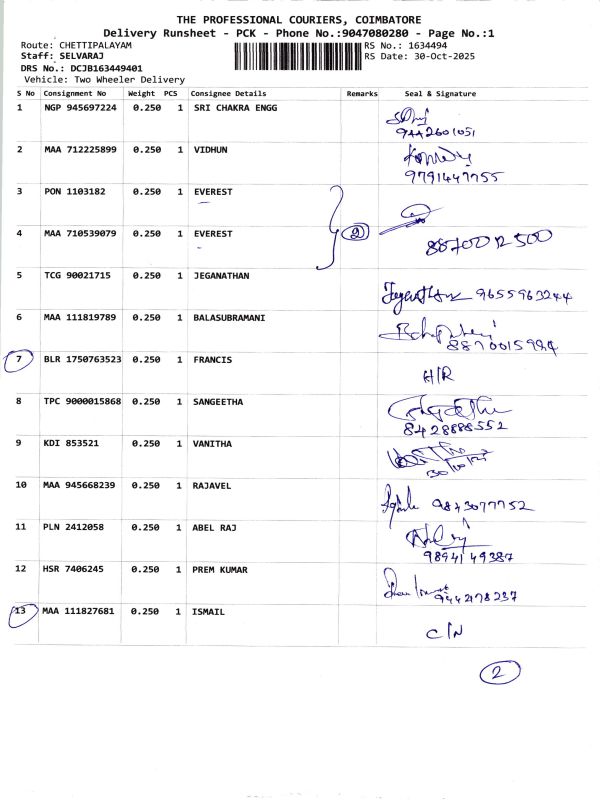 THE PROFESSIONAL COURIERS, COIMBATORE
Delivery Runsheet - PCK - Phone No.:9047080280 - Page No.:1
Route: CHETTIPALAYAM RS No.: 1634494
Staff: SELVARAJ RS Date: 30-Oct-2025
DRS No.: DCJB163449401
Vehicle: Two Wheeler Delivery
S No Consignment No Weight PCS Consignee Details Remarks Seal & Signature
1 NGP 945697224 0.250 1 SRI CHAKRA ENGG
9442601051
2 MAA 712225899 0.250 1 VIDHUN
9791447755
3 PON 1103182 0.250 1 EVEREST
2
4 MAA 710539079 0.250 1 EVEREST
8870012500
5 TCG 90021715 0.250 1 JEGANATHAN
9655963244
6 MAA 111819789 0.250 1 BALASUBRAMANI
8870015994
7 BLR 1750763523 0.250 1 FRANCIS
H/R
8 TPC 9000015868 0.250 1 SANGEETHA
8428888552
9 KDI 853521 0.250 1 VANITHA
30/10/25
10 MAA 945668239 0.250 1 RAJAVEL
9843077752
11 PLN 2412058 0.250 1 ABEL RAJ
9894149387
12 HSR 7406245 0.250 1 PREM KUMAR
9442178237
13 MAA 111827681 0.250 1 ISMAIL
C/N
2